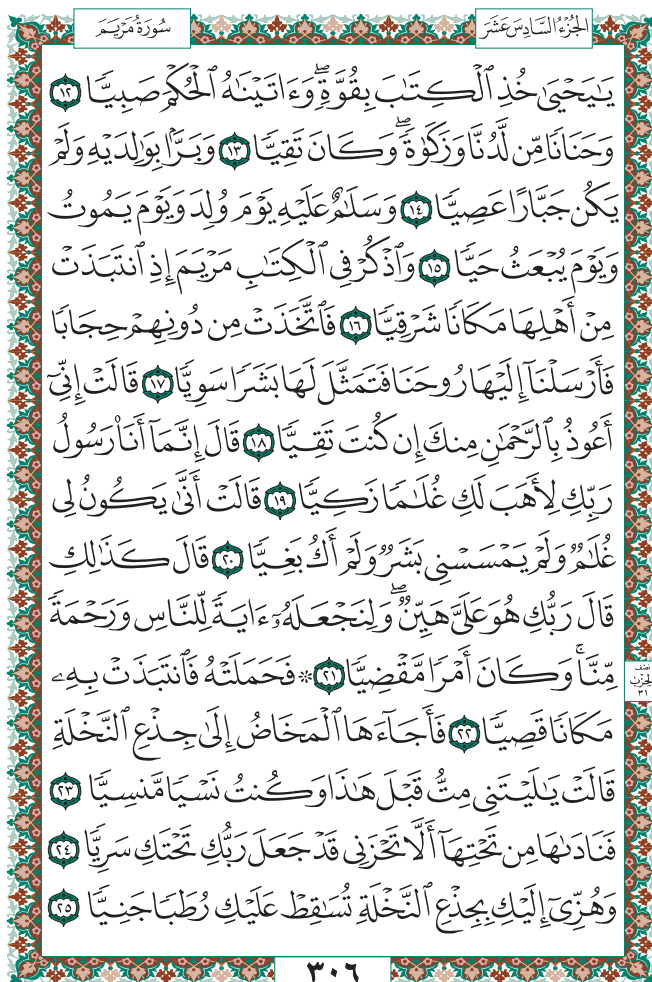 سُورَةُ مَرْيَمَ
الجُزْءُ السَّادِسَ عَشَرَ
يَٰيَحْيَىٰ خُذِ ٱلْكِتَٰبَ بِقُوَّةٍۖ وَءَاتَيْنَٰهُ ٱلْحُكْمَ صَبِيًّا ١٢
وَحَنَانًا مِّن لَّدُنَّا وَزَكَوٰةًۖ وَكَانَ تَقِيًّا ١٣ وَبَرًّۢا بِوَٰلِدَيْهِ وَلَمْ
يَكُن جَبَّارًا عَصِيًّا ١٤ وَسَلَٰمٌ عَلَيْهِ يَوْمَ وُلِدَ وَيَوْمَ يَمُوتُ
وَيَوْمَ يُبْعَثُ حَيًّا ١٥ وَٱذْكُرْ فِى ٱلْكِتَٰبِ مَرْيَمَ إِذِ ٱنتَبَذَتْ
مِنْ أَهْلِهَا مَكَانًا شَرْقِيًّا ١٦ فَٱتَّخَذَتْ مِن دُونِهِمْ حِجَابًا
فَأَرْسَلْنَآ إِلَيْهَا رُوحَنَا فَتَمَثَّلَ لَهَا بَشَرًا سَوِيًّا ١٧ قَالَتْ إِنِّىٓ
أَعُوذُ بِٱلرَّحْمَٰنِ مِنكَ إِن كُنتَ تَقِيًّا ١٨ قَالَ إِنَّمَآ أَنَا۠ رَسُولُ
رَبِّكِ لِأَهَبَ لَكِ غُلَٰمًا زَكِيًّا ١٩ قَالَتْ أَنَّىٰ يَكُونُ لِى
غُلَٰمٌ وَلَمْ يَمْسَسْنِى بَشَرٌ وَلَمْ أَكُ بَغِيًّا ٢٠ قَالَ كَذَٰلِكِ
قَالَ رَبُّكِ هُوَ عَلَىَّ هَيِّنٌۖ وَلِنَجْعَلَهُۥٓ ءَايَةً لِّلنَّاسِ وَرَحْمَةً
مِّنَّاۚ وَكَانَ أَمْرًا مَّقْضِيًّا ٢١ ۞ فَحَمَلَتْهُ فَٱنتَبَذَتْ بِهِۦ
مَكَانًا قَصِيًّا ٢٢ فَأَجَآءَهَا ٱلْمَخَاضُ إِلَىٰ جِذْعِ ٱلنَّخْلَةِ
قَالَتْ يَٰلَيْتَنِى مِتُّ قَبْلَ هَٰذَا وَكُنتُ نَسْيًا مَّنسِيًّا ٢٣
فَنَادَىٰهَا مِن تَحْتِهَآ أَلَّا تَحْزَنِى قَدْ جَعَلَ رَبُّكِ تَحْتَكِ سَرِيًّا ٢٤
وَهُزِّىٓ إِلَيْكِ بِجِذْعِ ٱلنَّخْلَةِ تُسَٰقِطْ عَلَيْكِ رُطَبًا جَنِيًّا ٢٥
نصف
الحزب
٣١
٣٠٦